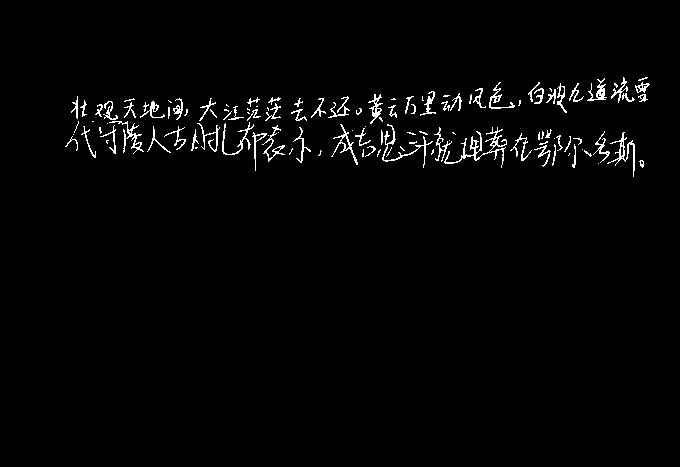 壮观天地间，大江茫茫去不还。黄云万里动风色，白波九道流雪
代守陵人古日扎布表示，成吉思汗就埋葬在鄂尔多斯。